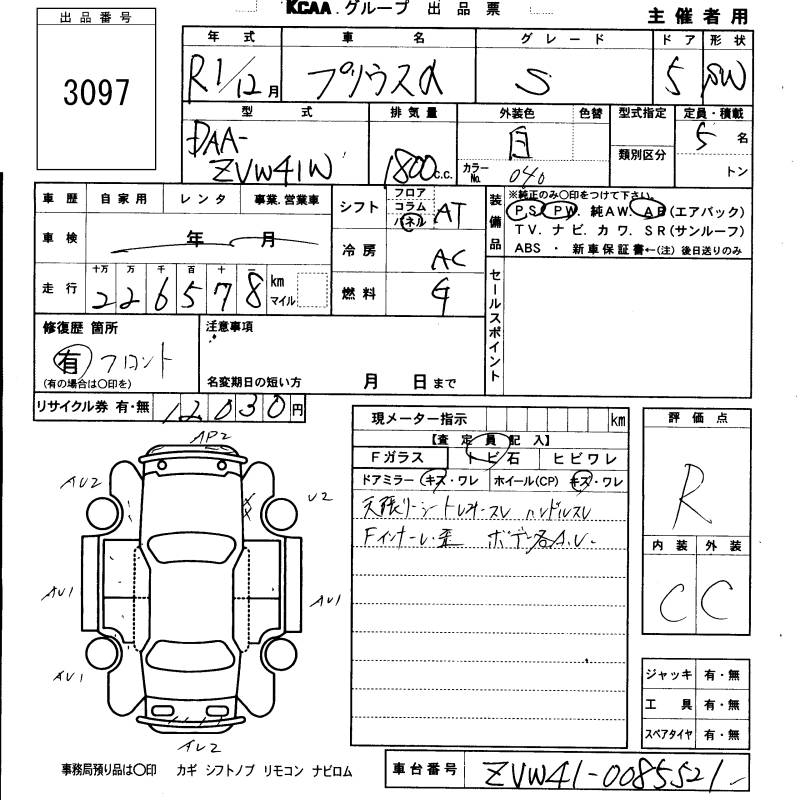 KCAA.グループ 出品票
主催者用
出品番号
3097
年式 車名 グレード ドア 形状
R1/12月 プリウスα S 5 SW
型式 排気量 外装色 色替 型式指定 定員・積載
DAA-ZVW41W 1800c.c. 白 5名
カラーNo. 040 類別区分 トン
車歴 自家用 レンタ 事業.営業車
車検 年 月
走行 十万 万 千 百 十 一
226578 km マイル
シフト フロア コラム パネル AT
冷房 AC
燃料
装備品 ※純正のみ○印をつけて下さい。
PS. PW. 純AW. AB(エアバック)
TV. ナビ. カワ. SR(サンルーフ)
ABS ・ 新車保証書←(注)後日送りのみ
セールスポイント
修復歴 箇所
有 フロント
(有の場合は○印を)
注意事項
名変期日の短い方 月 日まで
リサイクル券 有・無 12030円
現メーター指示 km
【査定員記入】
Fガラス トビ石 ヒビワレ
ドアミラー キズ・ワレ ホイール(CP) キズ・ワレ
天張リーシートレオースレ ハンドルスレ
ボデー各A.U.
評価点
R
内装 外装
C C
AP2
AU2
U2
AU1
AU1
AU1
AU2
ジャッキ 有・無
工具 有・無
スペアタイヤ 有・無
事務局預り品は○印 カギ シフトノブ リモコン ナビロム
車台番号 ZVW41-0085521